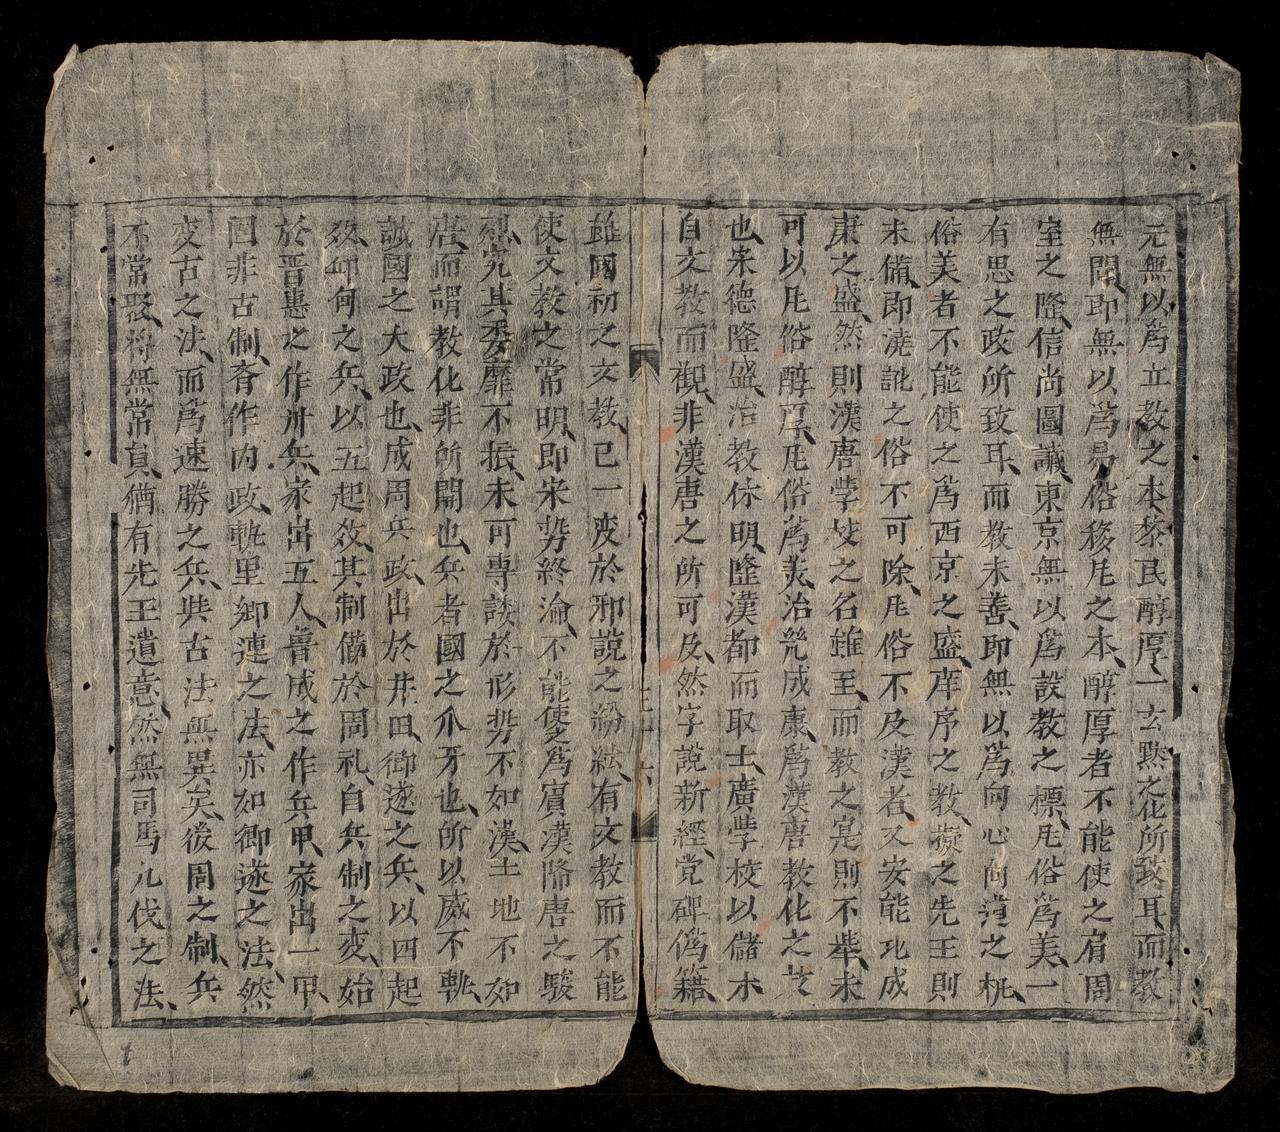 元無以爲立教之本黎民醇厚一玄默之化所致耳而教
無聞即無以爲易俗移風之本醇厚者不能使之有周
室之隆信尚圖讖東京無以爲設教之標風俗爲美一
有思之政所致耳而教未善即無以爲向心向道之机
俗美者不能使之爲西京之盛庠序之教擬之先王則
未備即澆訛之俗不可除風俗不及漢者又安能比成
康之盛然則漢唐學校之名雖至而教之寔則不举未
可以風俗醇厚風俗爲美治幾成康爲漢唐教化之技
也宋德隆盛治教休明隆漢都而取士廣學校以儲才
自文教而觀非漢唐之所可及然字說新經党碑僞籍
雖國初之文教已一变於邪說之紛紜有文教而不能
使文教之常明即宋势終淪不能使之爲賓漢降唐之駿
烈究其委靡不振未可專談於形势不如漢土地不如
唐而謂教化非所關也兵者國之爪牙也所以威不軌
誠國之大政也成周兵政出於井田御遂之兵以四起
效卸何之兵以五起效其制備於周礼自兵制之变始
於晋惠之作州兵家出五人魯成之作兵甲家出一甲
固非古制斉作内政軌里郷連之法亦如御遂之法然
变古之法而爲速勝之兵與古法無異矣後周之制兵
不常聚將無常員猶有先王遺意然無司馬九伐之法